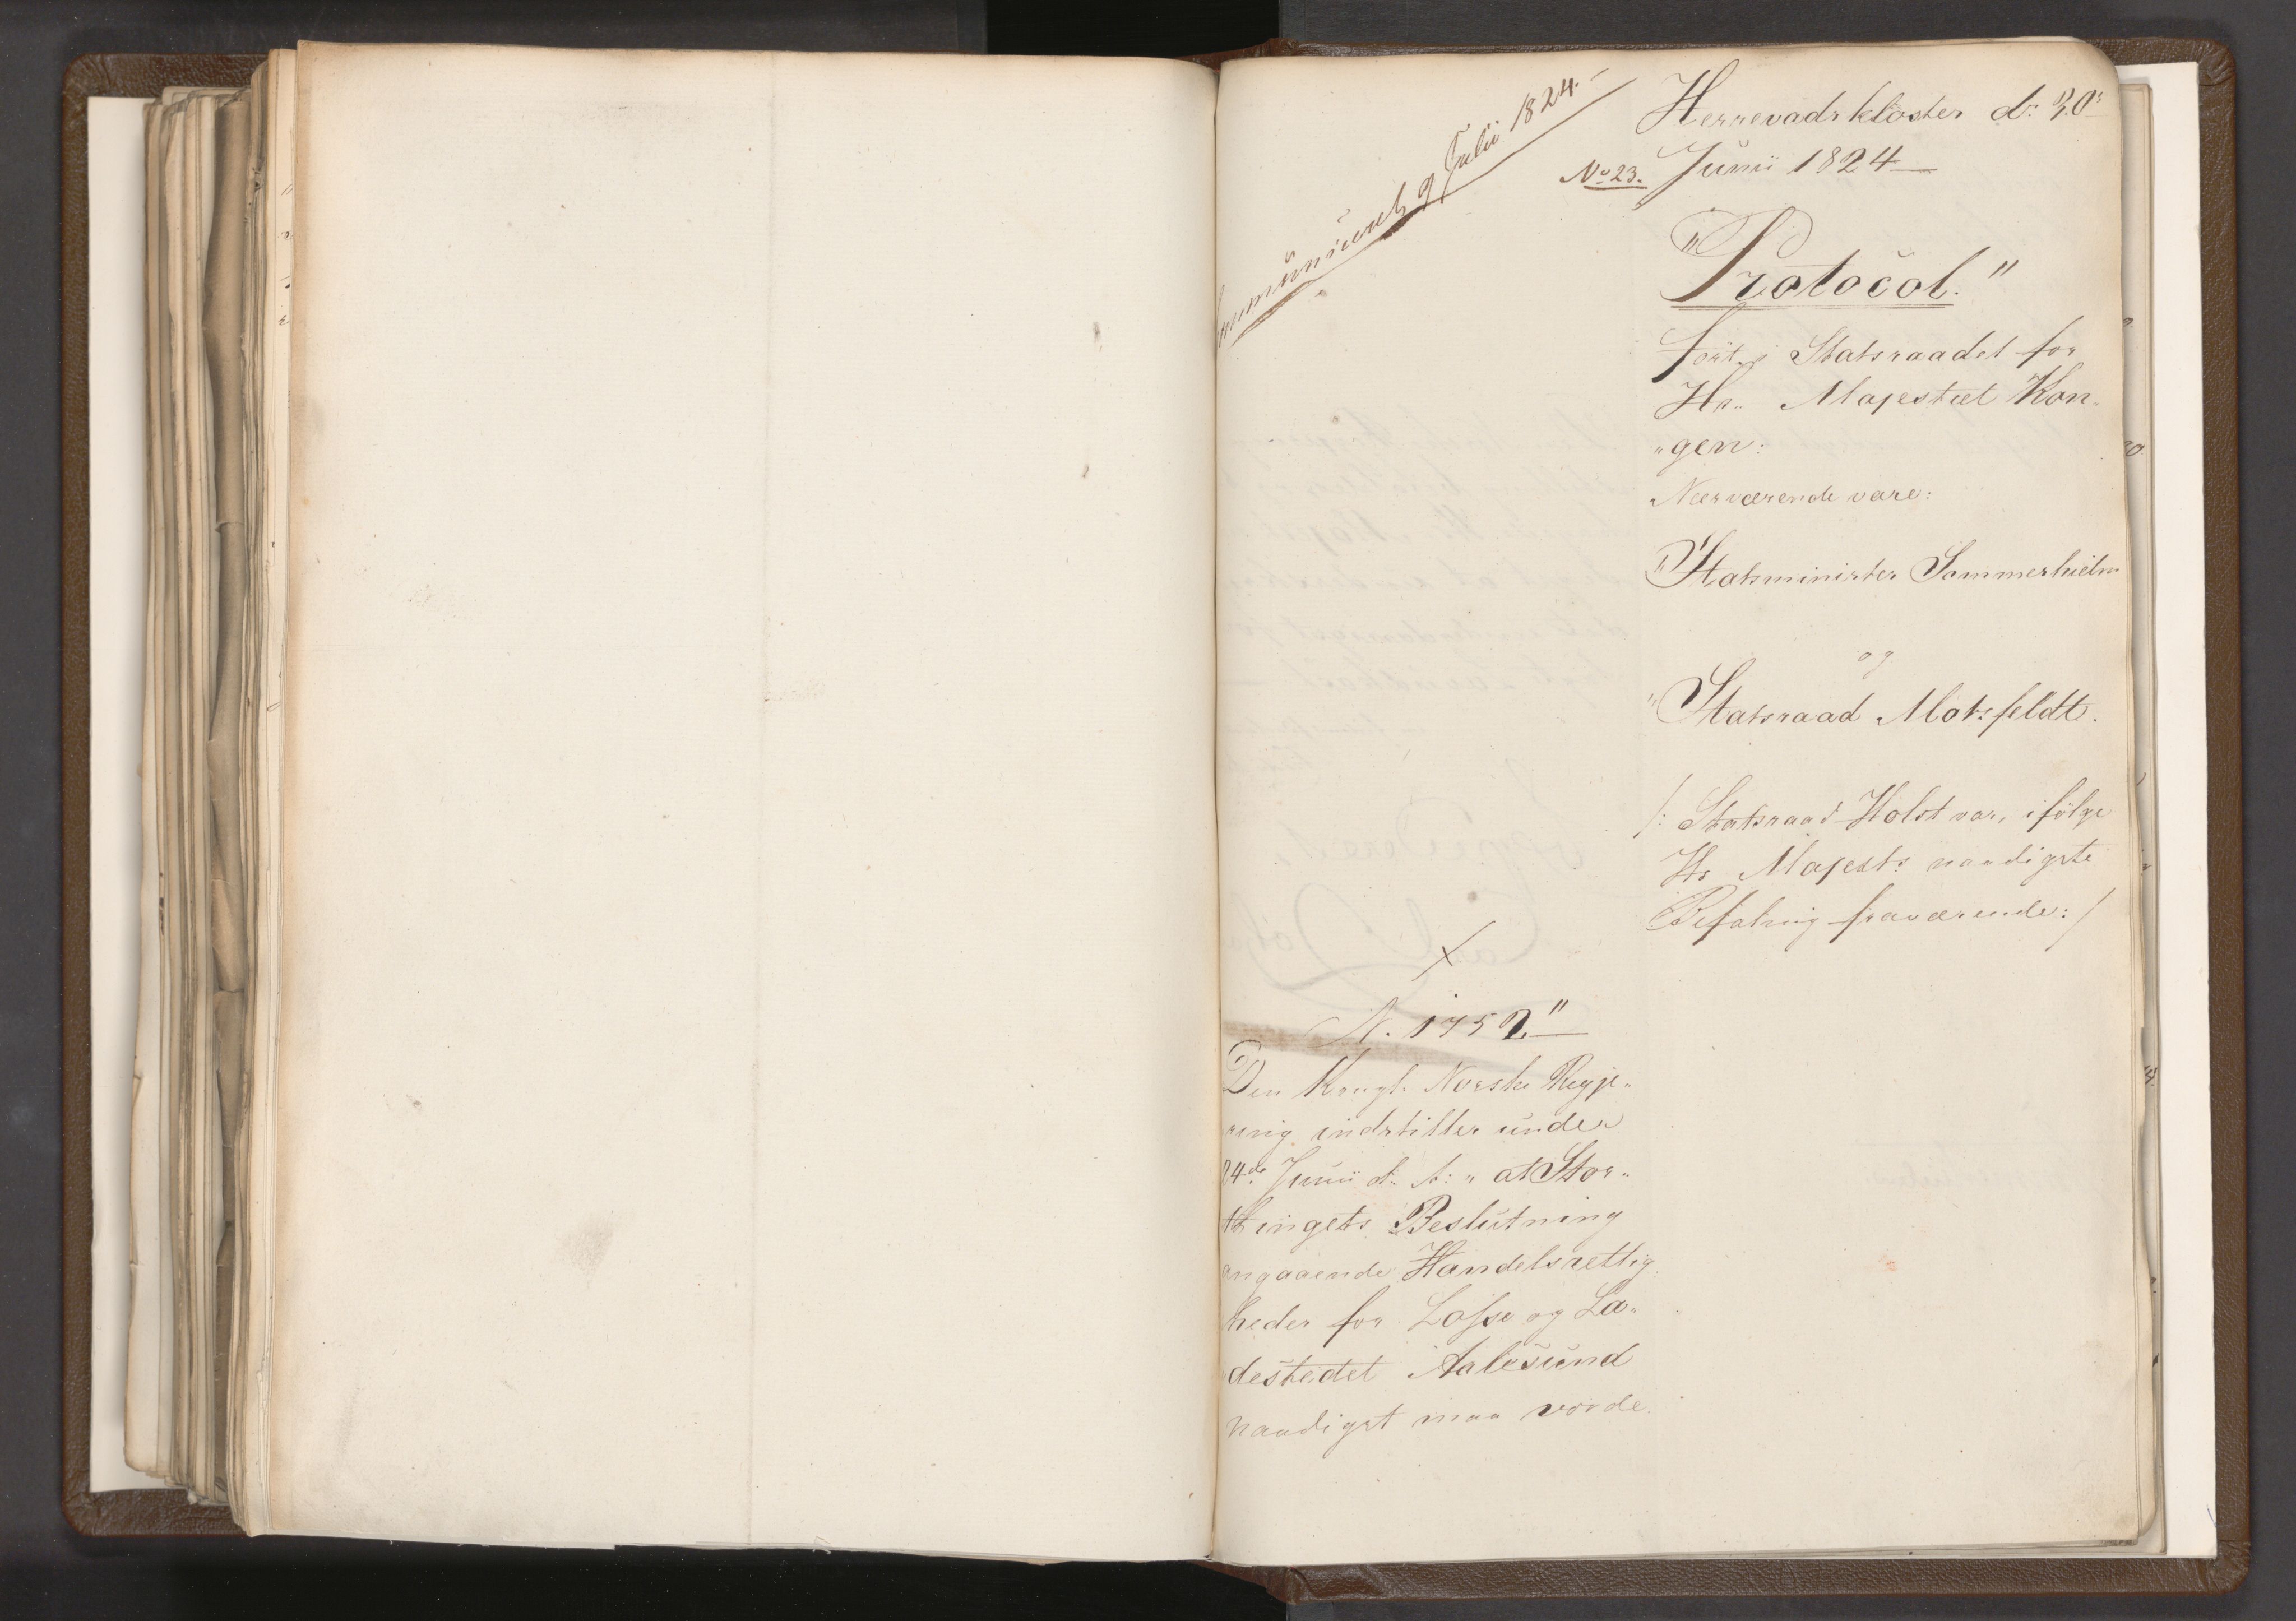 communiceret 9 Julii 1824.
Herrevadskloster d: 30te
No 23. Junii 1824
"Protocol."
fört i Statsraadet for
Hs. Majestæt Kon-
"gen:
Nærværende vare:
"Statsminister Sommerhielm
og
"Statsraad Motzfeldt.
/: Statsraad Holst var, ifölge
Hs Majests naadigste
Befaling fraværende: /
N. 1752"
Den Kongl. Norske Regje-
ring indstiller under
24de Junii d. A: "at Stor-
thingets Beslutning
angaaende Handelsrettig-
heder for Losse og La-
destedet Aalesund
naadigst maa vorde